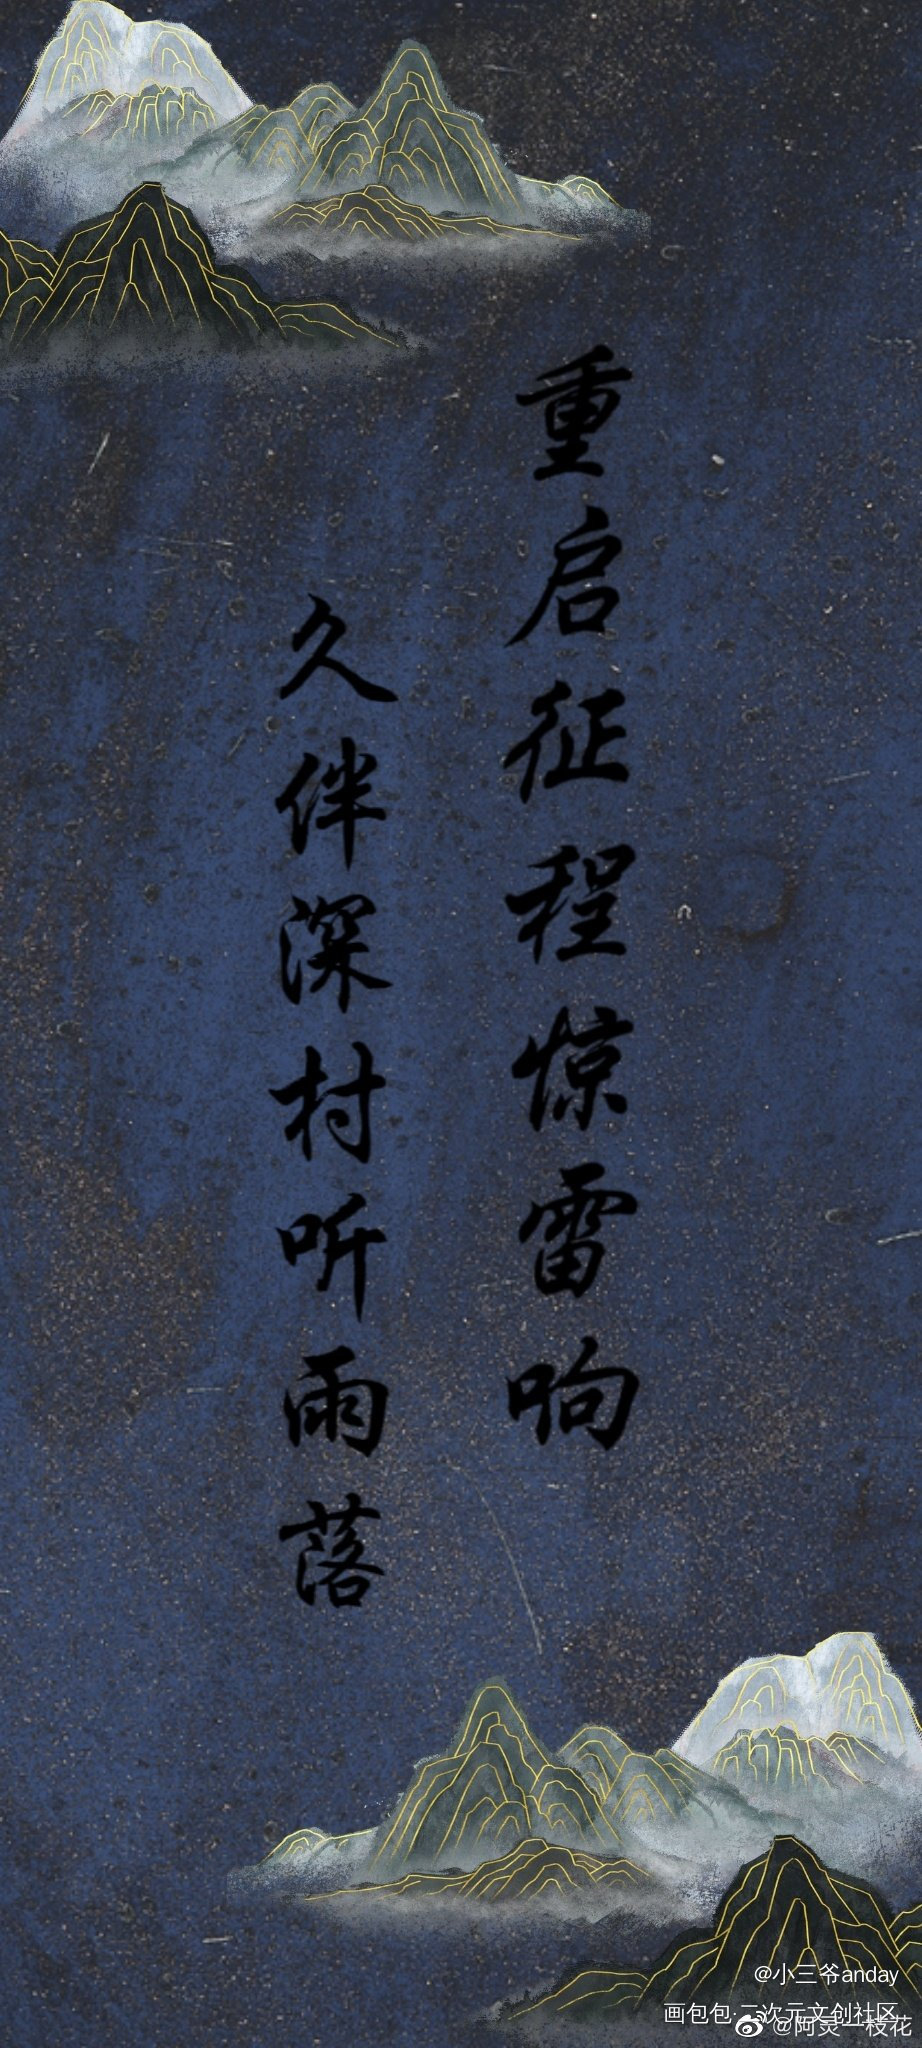 重启征程惊雷响
久伴深村听雨落
@小三爷anday
画包包·二次元文创社区
@阿灵一枝花